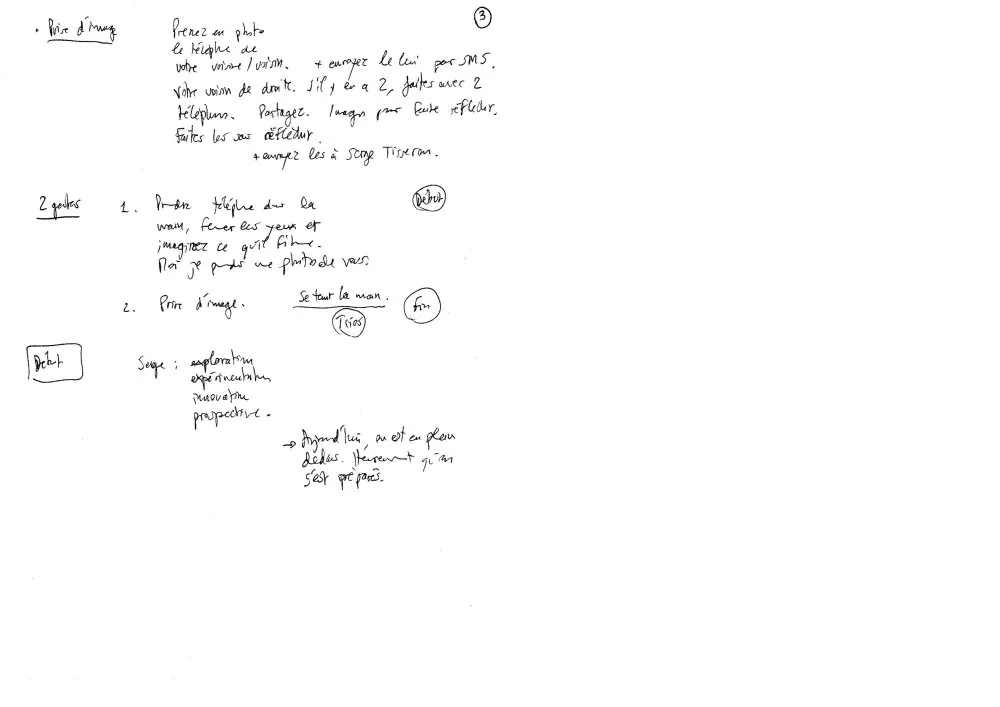 3
• Prise d'image
Prenez en photo
le téléphone de
votre voisine/voisin. + envoyez le lui par SMS.
Votre voisin de droite. S'il y en a 2, faites avec 2
téléphones. Partagez. Images pour faire réfléchir.
Faites les nous réfléchir.
+ envoyez les à Serge Tisseron.
2 gestes
1. Prendre téléphone dans la
Début
main, fermer les yeux et
imaginez ce qu'il filme.
Moi je prends une photo de vous.
2. Prise d'image.
Se tenir la main.
Fin
Trios
Début
Serge : exploration
expérimentation
innovation
prospective.
→ Aujourd'hui, on est en plein
dedans. Heureusement qu'on
s'est préparés.